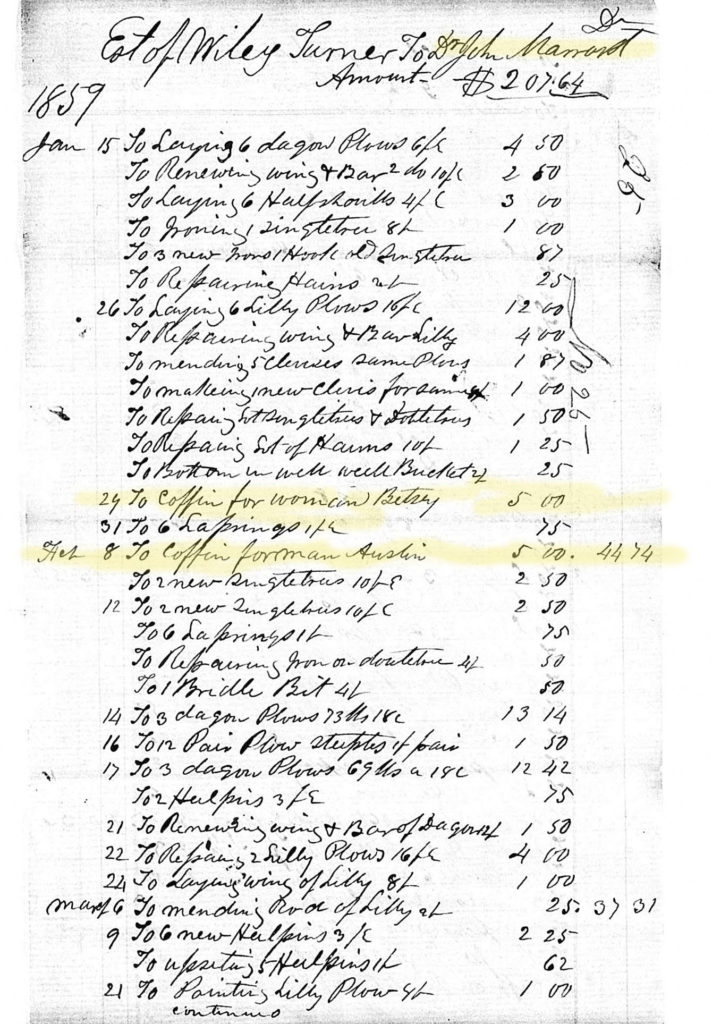 Dr
Est of Wiley Turner To Dr John Marrast
Amount $207.64
1859
Jan 15 To Laying 6 dagon Plows 6/c 4 50
To Renewing wing & Bar 2 do 10/c 2 50
To Laying 6 Halfshovills 4/c 3 00
To Ironing 1 Singletree 8/ 1 00
To 3 new Irons 1 Hook old Singletree 87
To Repairing Hains 2/ 25
26 To Laying 6 Lilly Plows 16/c 12 00
To Repairing wing & Bar Lilly 4 00
To mending 5 Clevises same Plows 1 87
To makeing 1 new Clevis for same 1 00
To Repairing Lot Singletrus & Dobletrus 1 50
To Repairing Lot of Haims 10/ 1 25
To Bottom in well well Bucket 2/ 25
29 To Coffin for woman Betsey 5 00
31 To 6 Laprings 1/c 75
Feb 8 To Coffin for man Austin 5 00. 44 74
To 2 new Singletrus 10/c 2 50
12 To 2 new Singletrus 10/c 2 50
To 6 Laprings 1/ 75
To Repairing Iron on doubletree 4/ 50
To 1 Bridle Bit 4/ 50
14 To 3 dagon Plows 73 lbs 18c 13 14
16 To 12 Pair Plow Steeples 1/ pair 1 50
17 To 3 dagon Plows 69 lbs a 18c 12 42
To 2 Heelpins 3/c 75
21 To Renewing wing & Bar of Dagon 12/ 1 50
22 To Repairing 2 Lilly Plows 16/c 4 00
24 To Laying wing of Lilly 8/ 1 00
March 6 To mending Rod of Lilly 2/ 25. 37 31
9 To 6 new Heelpins 3/c 2 25
To upseting 5 Heelpins 1/ 62
21 To Pointing Lilly Plow 8/ 1 00
continued